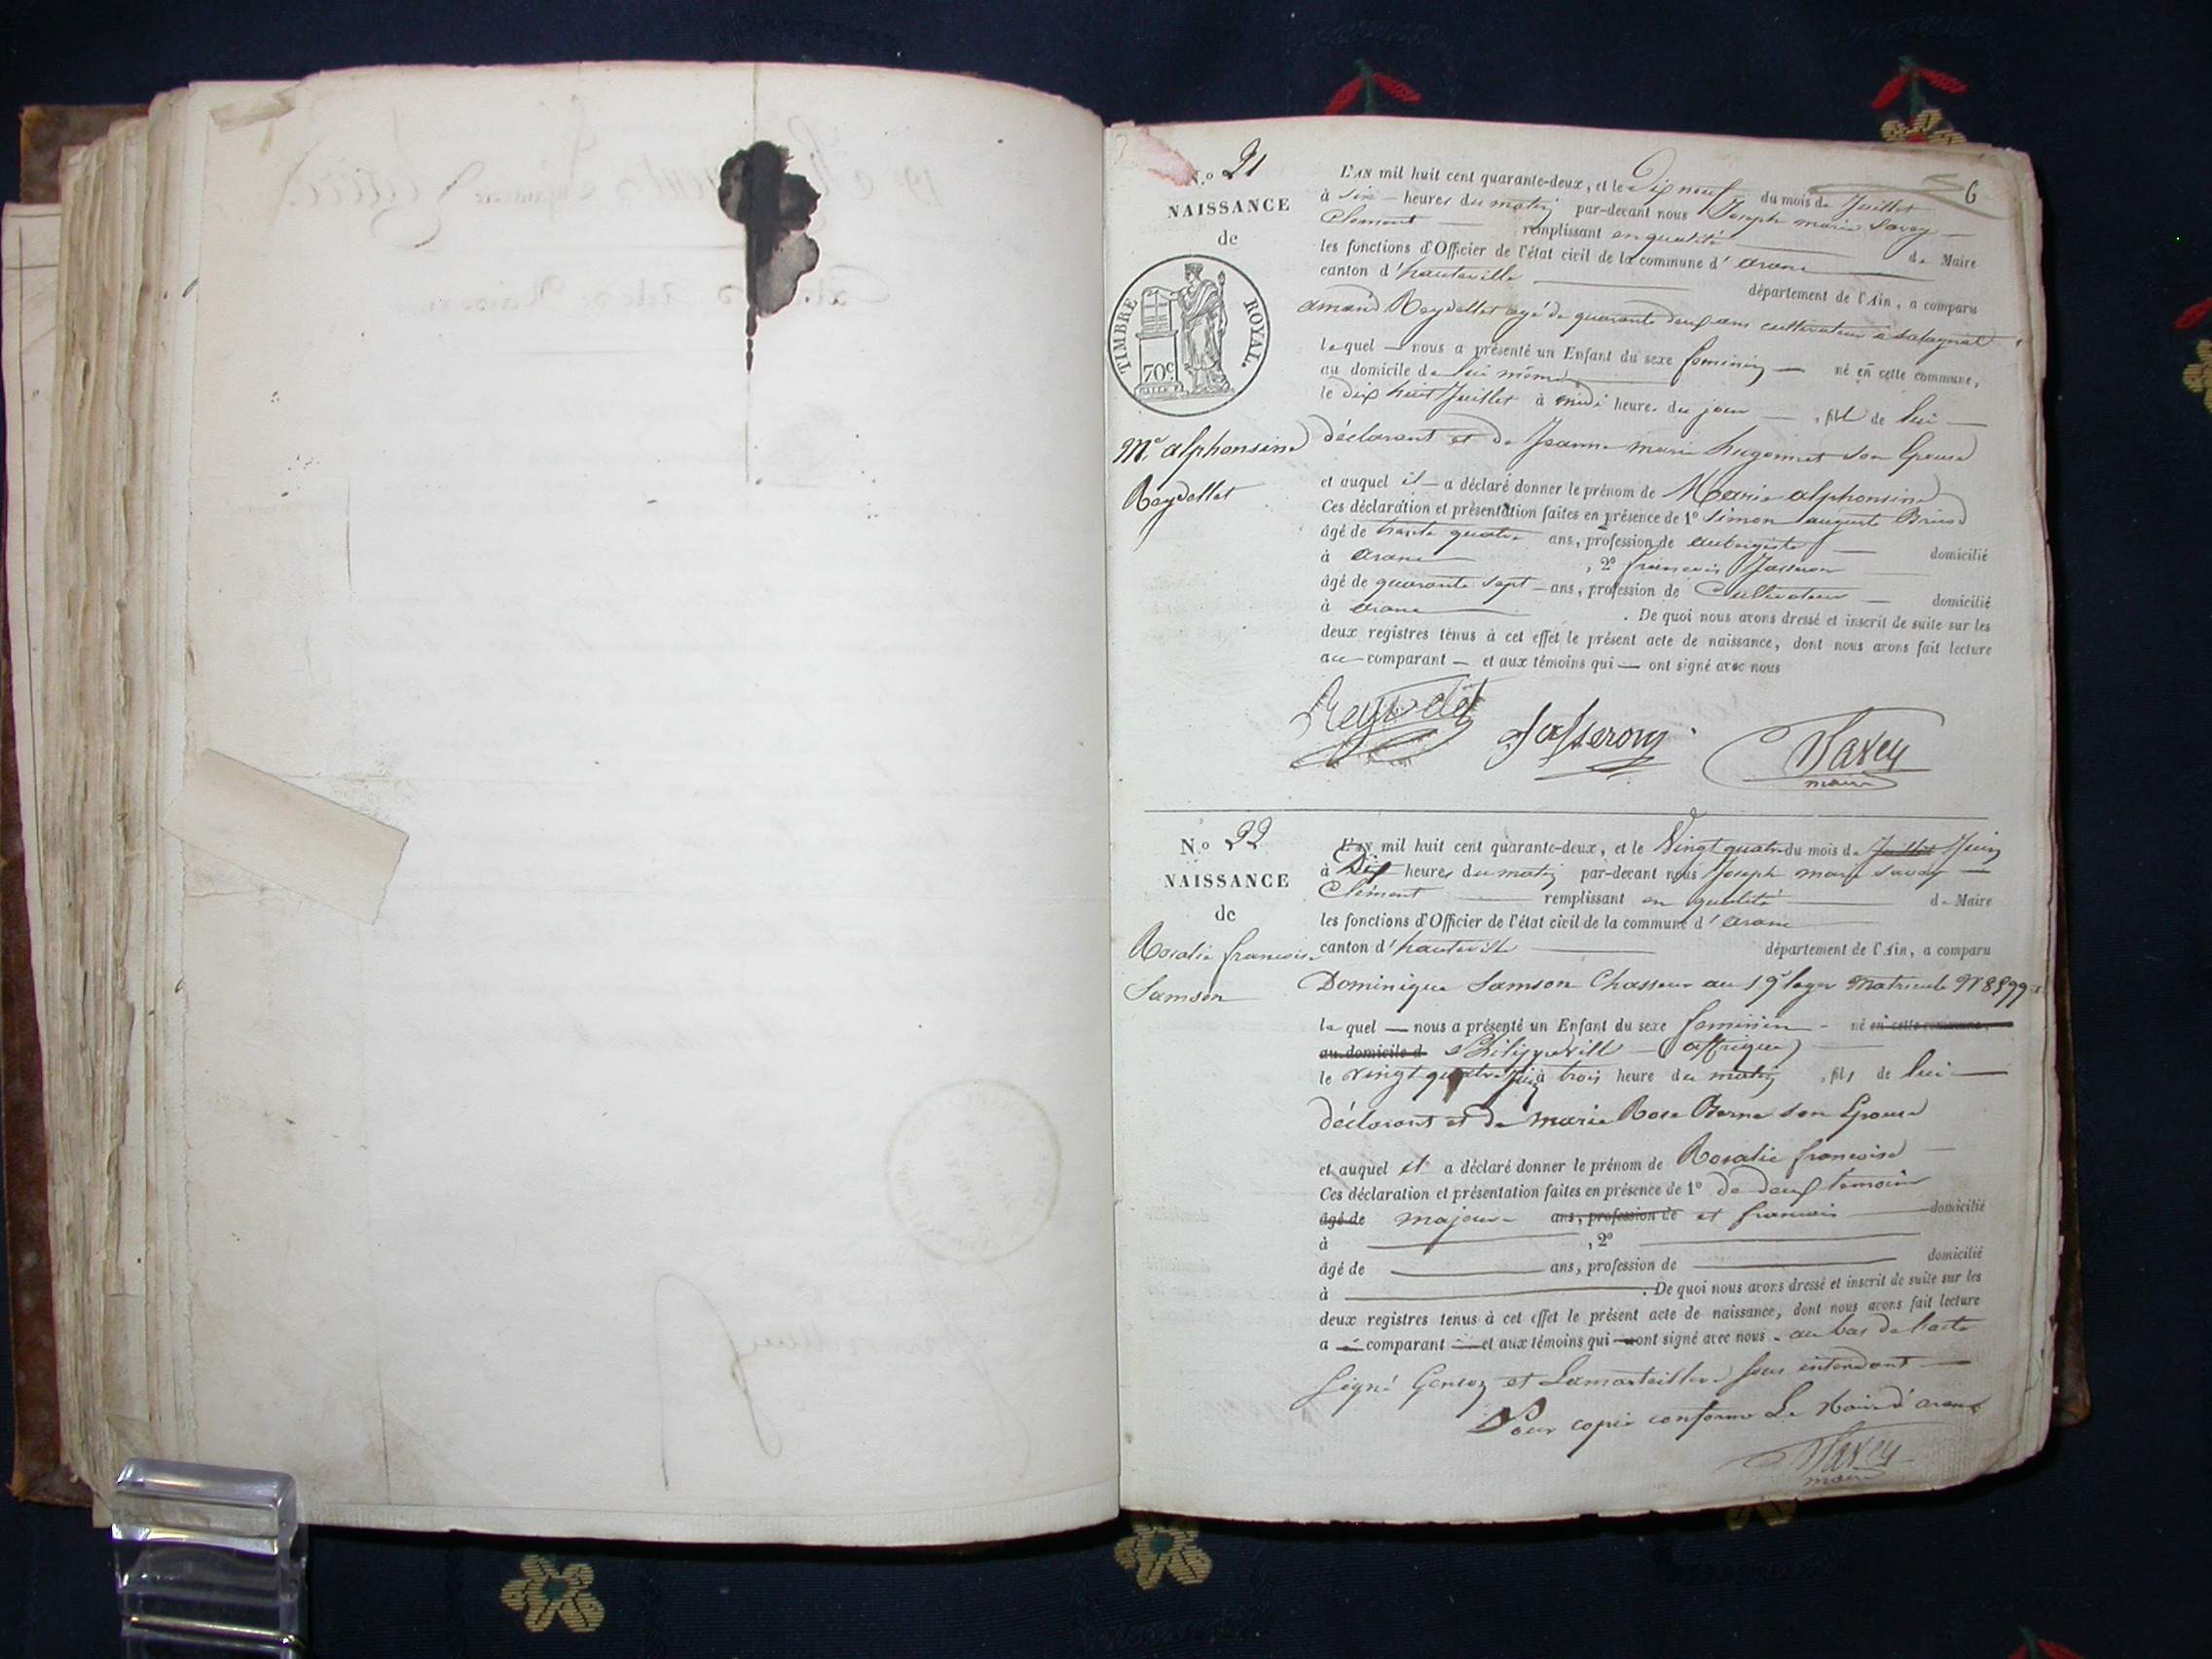 6
N.o 21
NAISSANCE
de
TIMBRE ROYAL.
70c
Me alphonsine
Reydellet
L'AN mil huit cent quarante-deux, et le Dix neuf du mois de Juillet
à six heures du matin par-devant nous Joseph marie Savey
Clément remplissant en qualité de Maire
les fonctions d'Officier de l'état civil de la commune d'arane
canton d'hauteville département de l'Ain, a comparu
amand Reydellet agé de quarante deux ans cultivateur à
le quel nous a présenté un Enfant du sexe feminin né en cette commune,
au domicile de lui même
le dix huit Juillet à midi heures du jour , fille de lui
déclarant et de Jeanne marie hugonnet son Epouse
et auquel il a déclaré donner le prénom de Marie alphonsine
Ces déclaration et présentation faites en présence de 1o Simon auguste
âgé de trente quatre ans, profession de aubergiste domicilié
à arane , 2o francois Jasseron
âgé de quarante sept ans, profession de Cultivateur domicilié
à arane . De quoi nous avons dressé et inscrit de suite sur les
deux registres tenus à cet effet le présent acte de naissance, dont nous avons fait lecture
au comparant et aux témoins qui ont signé avec nous
Reydellet Jasseron Savey
maire
N.o 22
NAISSANCE
de
Rosalie francoise
Samson
L'AN mil huit cent quarante-deux, et le Vingt quatre du mois de Juillet Juin
à Dix heures du matin par-devant nous Joseph marie Savey
Clément remplissant en qualité de Maire
les fonctions d'Officier de l'état civil de la commune d'arane
canton d'hauteville département de l'Ain, a comparu
Dominique Samson Chasseur au 19e leger Matricule
le quel nous a présenté un Enfant du sexe feminin né en cette commune,
au domicile d Philippeville affrique
le vingt quatre Juin à trois heure du matin , fils de lui
déclarant et de marie Rose son Epouse
et auquel il a déclaré donner le prénom de Rosalie francoise
Ces déclaration et présentation faites en présence de 1o de deux témoins
âgé de majeur ans, profession de et francais domicilié
à , 2o
âgé de ans, profession de domicilié
à . De quoi nous avons dressé et inscrit de suite sur les
deux registres tenus à cet effet le présent acte de naissance, dont nous avons fait lecture
a comparant et aux témoins qui ont signé avec nous au bas de l'acte
Signé et sous intendant
Pour copie conforme Le Maire d'arane
Savey
maire